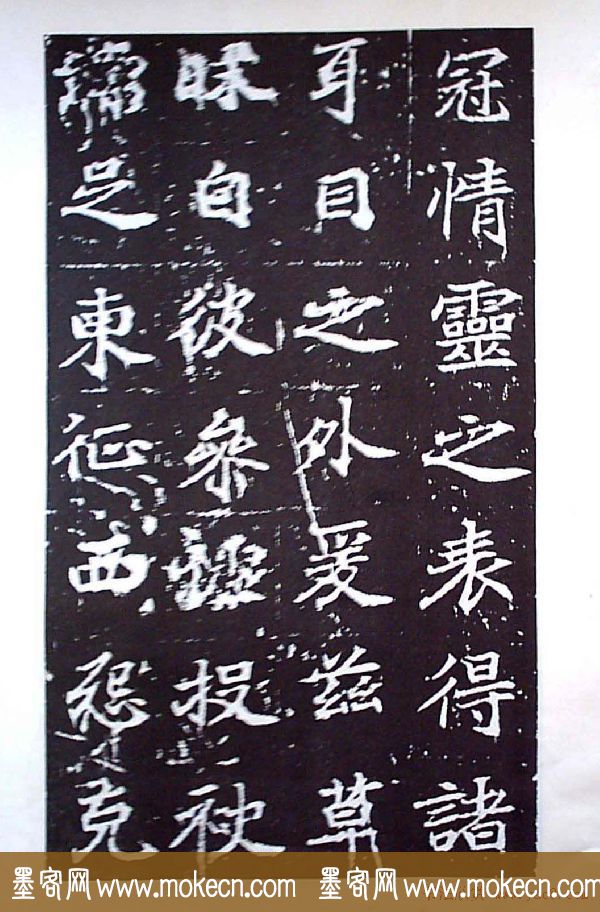 冠情靈之表得諸
耳目之外爰茲草
昧自彼參墟投袂
濡足東征西怨克
墨客网 www.mokecn.com 墨客网 www.mokecn.com